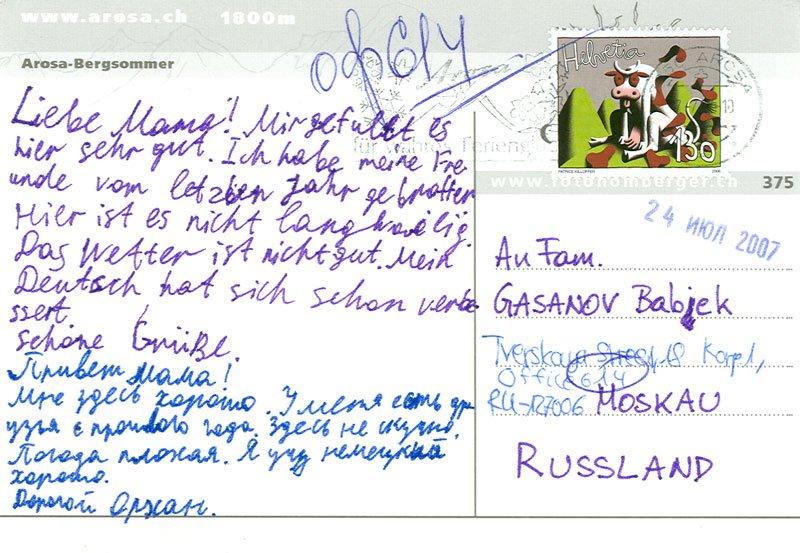 www.arosa.ch 1800m
Arosa-Bergsommer
оф 614
Helvetia
130
PATRICK KILLOFFER 2006
AROSA
www.fotohomberger.ch 375
Liebe Mama! Mir gefällt es
hier sehr gut. Ich habe meine Fre-
unde vom letzten Jahr gebrotten
Hier ist es nicht langweilig.
Das Wetter ist nicht gut. Mein
Deutsch hat sich schon verbe-
ssert.
Schöne Grüße.
Привет мама!
Мне здесь хорошо. У меня есть дру
узья с прошлого года. Здесь не скучно.
Погода плохая. Я учу немецкий
хорошо.
Дорогой Орхан.
24 ИЮЛ 2007
An Fam.
GASANOV Babjek
Tverskaya street 18 Korp1,
Office 614
RU-127006 MOSKAU
RUSSLAND